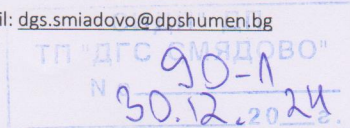 il: dgs.smiadovo@dpshumen.bg
ТП "ДГС СМЯДОВО"
N 90-1
30.12.2024 г.